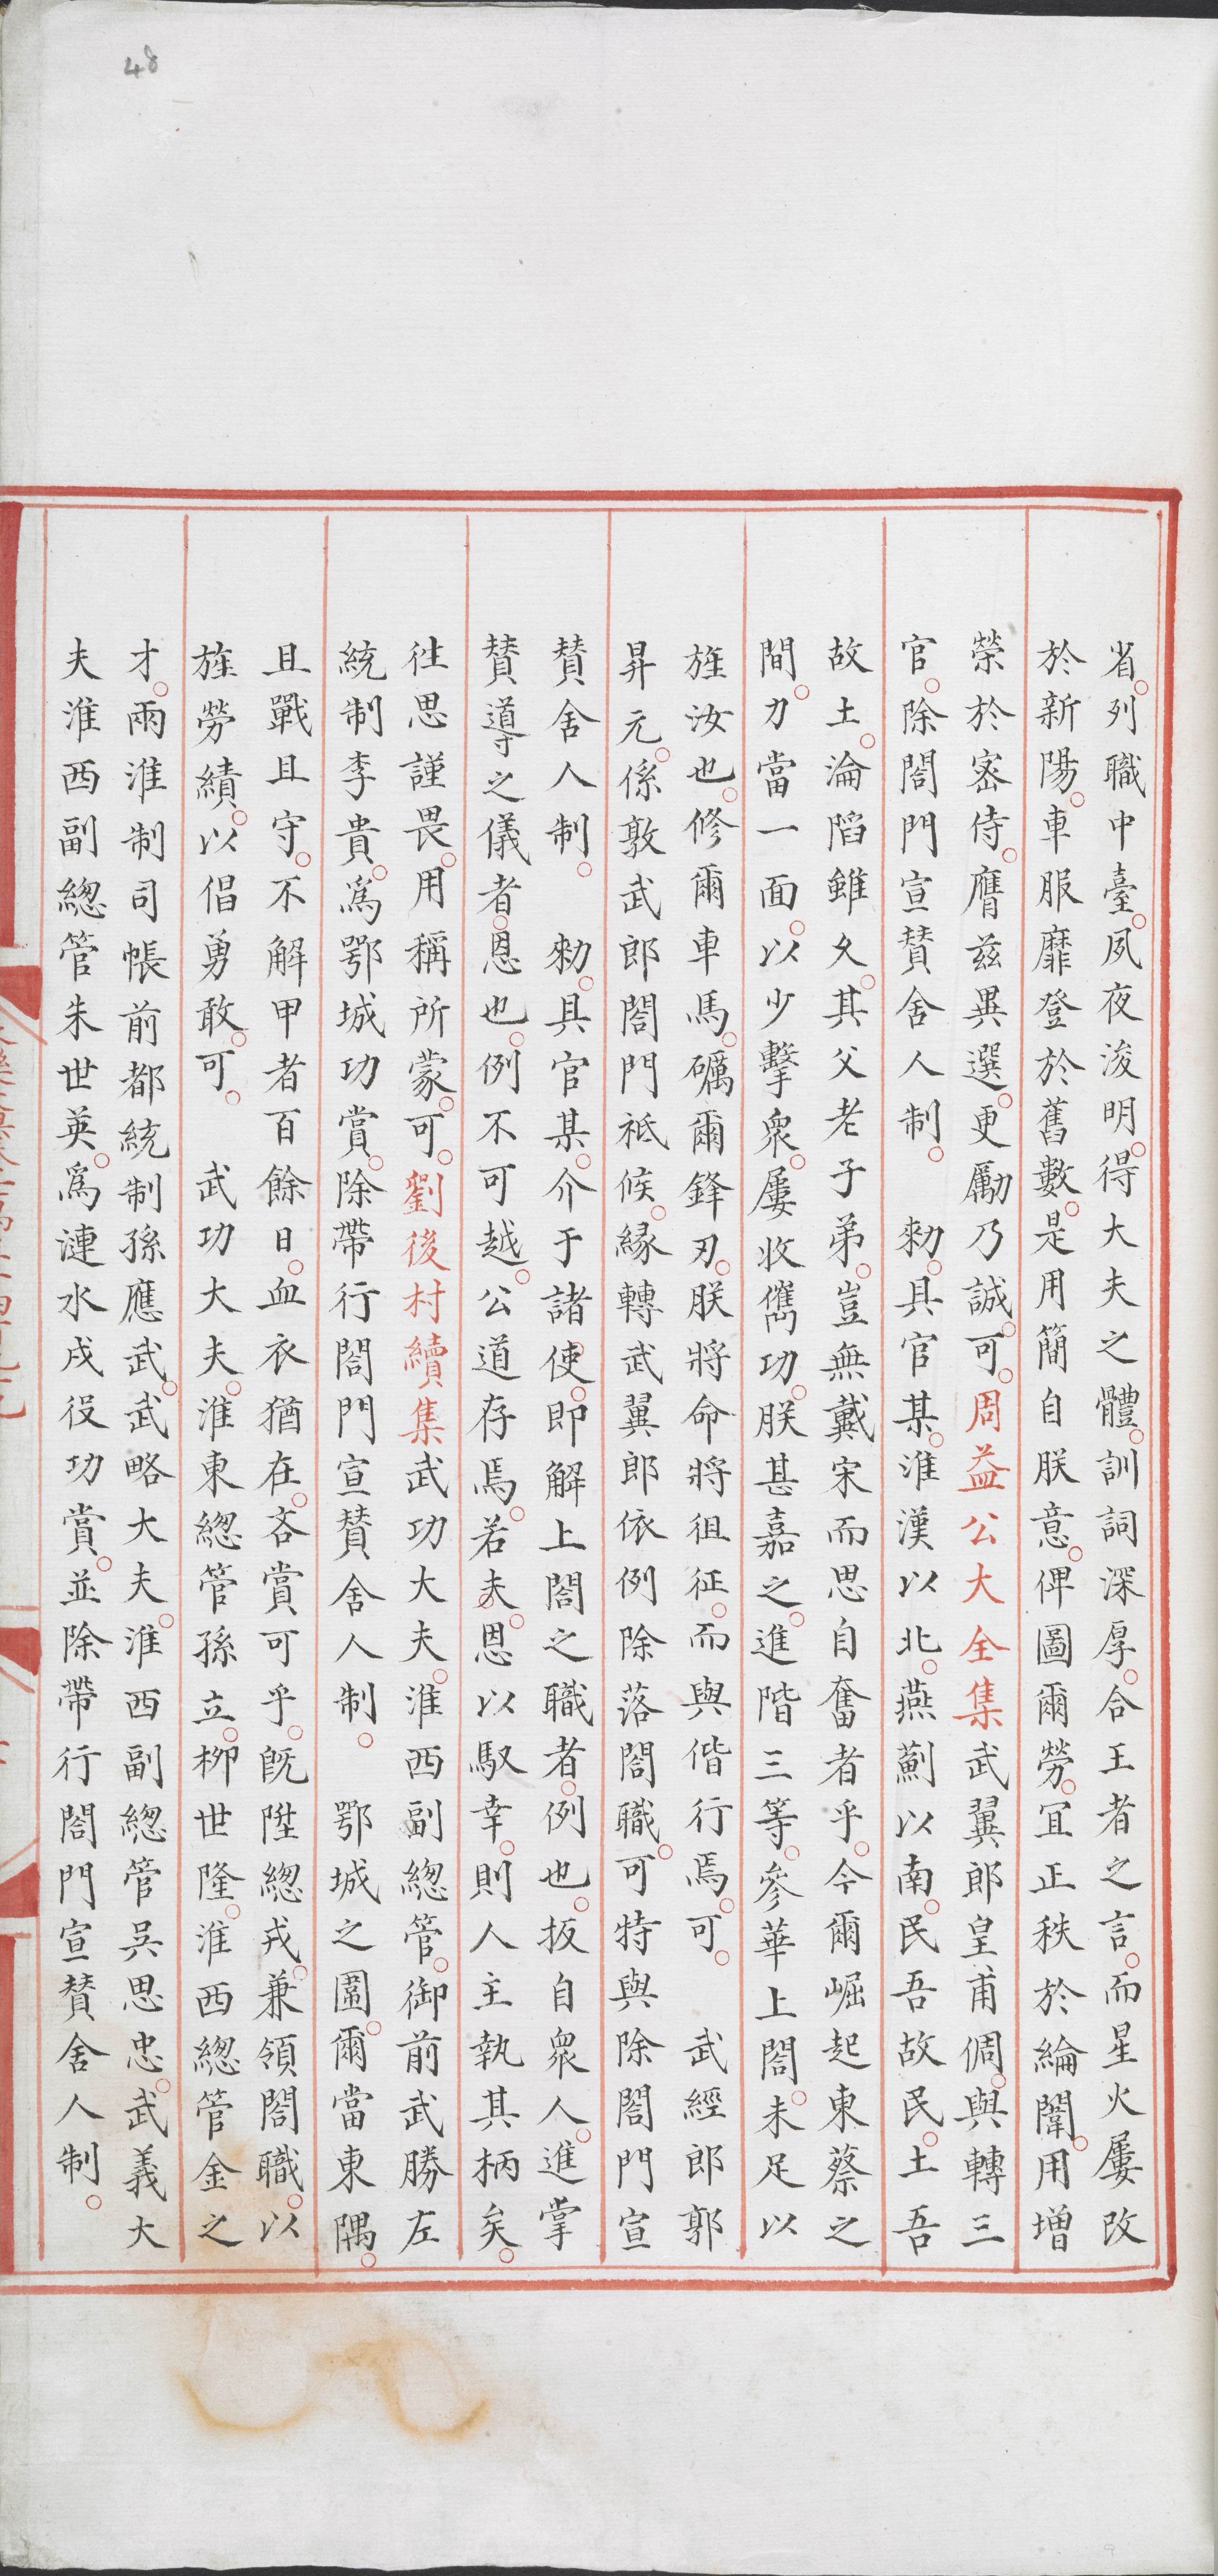 48
省列職中臺夙夜浚明得大夫之體訓詞深厚合王者之言而星火屢改
於新陽車服靡登於舊數是用簡自朕意俾圖爾勞冝正秩於綸闈用增
榮於宻侍膺兹異選更勵乃誠可周益公大全集武翼郎皇甫倜與轉三
官除閤門宣賛舍人制　勑具官某淮漢以北燕薊以南民吾故民土吾
故土淪陷雖乆其父老子弟豈無戴宋而思自奮者乎今爾崛起東蔡之
間力當一面以少擊衆屢收儁功朕甚嘉之進階三等參華上閤未足以
旌汝也修爾車馬礪爾鋒刃朕將命將徂征而與偕行焉可　武經郎郭
昇元係敦武郎閤門祗候縁轉武翼郎依例除落閤職可特與除閤門宣
賛舍人制　勑具官某介于諸使即解上閤之職者例也扳自衆人進掌
賛導之儀者恩也例不可越公道存焉若夫恩以馭幸則人主執其柄矣
徃思謹畏用稱所蒙可劉後村續集武功大夫淮西副緫管御前武勝左
統制李貴爲鄂城功賞除帶行閤門宣賛舍人制　鄂城之圍爾當東隅
且戰且守不解甲者百餘日血衣猶在吝賞可乎旣陞緫戎兼領閤職以
旌勞績以倡勇敢可　武功大夫淮東緫管孫立栁世隆淮西緫管金之
才兩淮制司帳前都統制孫應武武略大夫淮西副緫管吳思忠武義大
夫淮西副緫管朱世英爲漣水戍役功賞並除帶行閤門宣賛舍人制